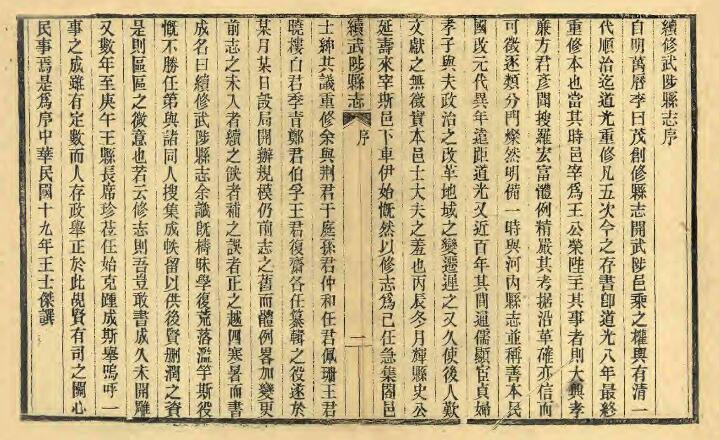 續修武陟縣志序
自明萬曆李曰茂創修縣志開武陟邑乘之權輿有清一
代順治迄道光重修凡五次今之存書卽道光八年最終
重修本也當其時邑宰爲王公榮陛主其事者則大興孝
廉方君彥聞搜羅宏富體例精嚴其考据沿革確亦信而
可徵逐類分門燦然明備一時與河內縣志並稱善本民
國改元代異年遠距道光又近百年其間通儒顯宦貞婦
孝子與夫政治之改革地域之變遷遲之又久使後人歎
文獻之無徵實本邑士大夫之羞也丙辰冬月輝縣史公
延壽來宰斯邑下車伊始慨然以修志爲己任急集閤邑
續武陟縣志
序
二
士紳共議重修余與荆君千庭孫君仲和任君佩珊王君
曉樓白君季青鄭君伯孚王君復齋各任纂輯之役遂於
某月某日設局開辦規模仍前志之舊而體例畧加變更
前志之未入者續之缺者補之誤者正之越四寒暑而書
成名曰續修武陟縣志余識旣檮昧學復荒落濫竽斯役
慨不勝任第與諸同人搜集成帙留以供後賢刪潤之資
是則區區之微意也若云修志則吾豈敢書成久未開雕
又數年至庚午王縣長席珍莅任始克踵成斯舉嗚呼一
事之成雖有定數而人存政舉正於此覘賢有司之關心
民事焉是爲序中華民國十九年王士傑譔